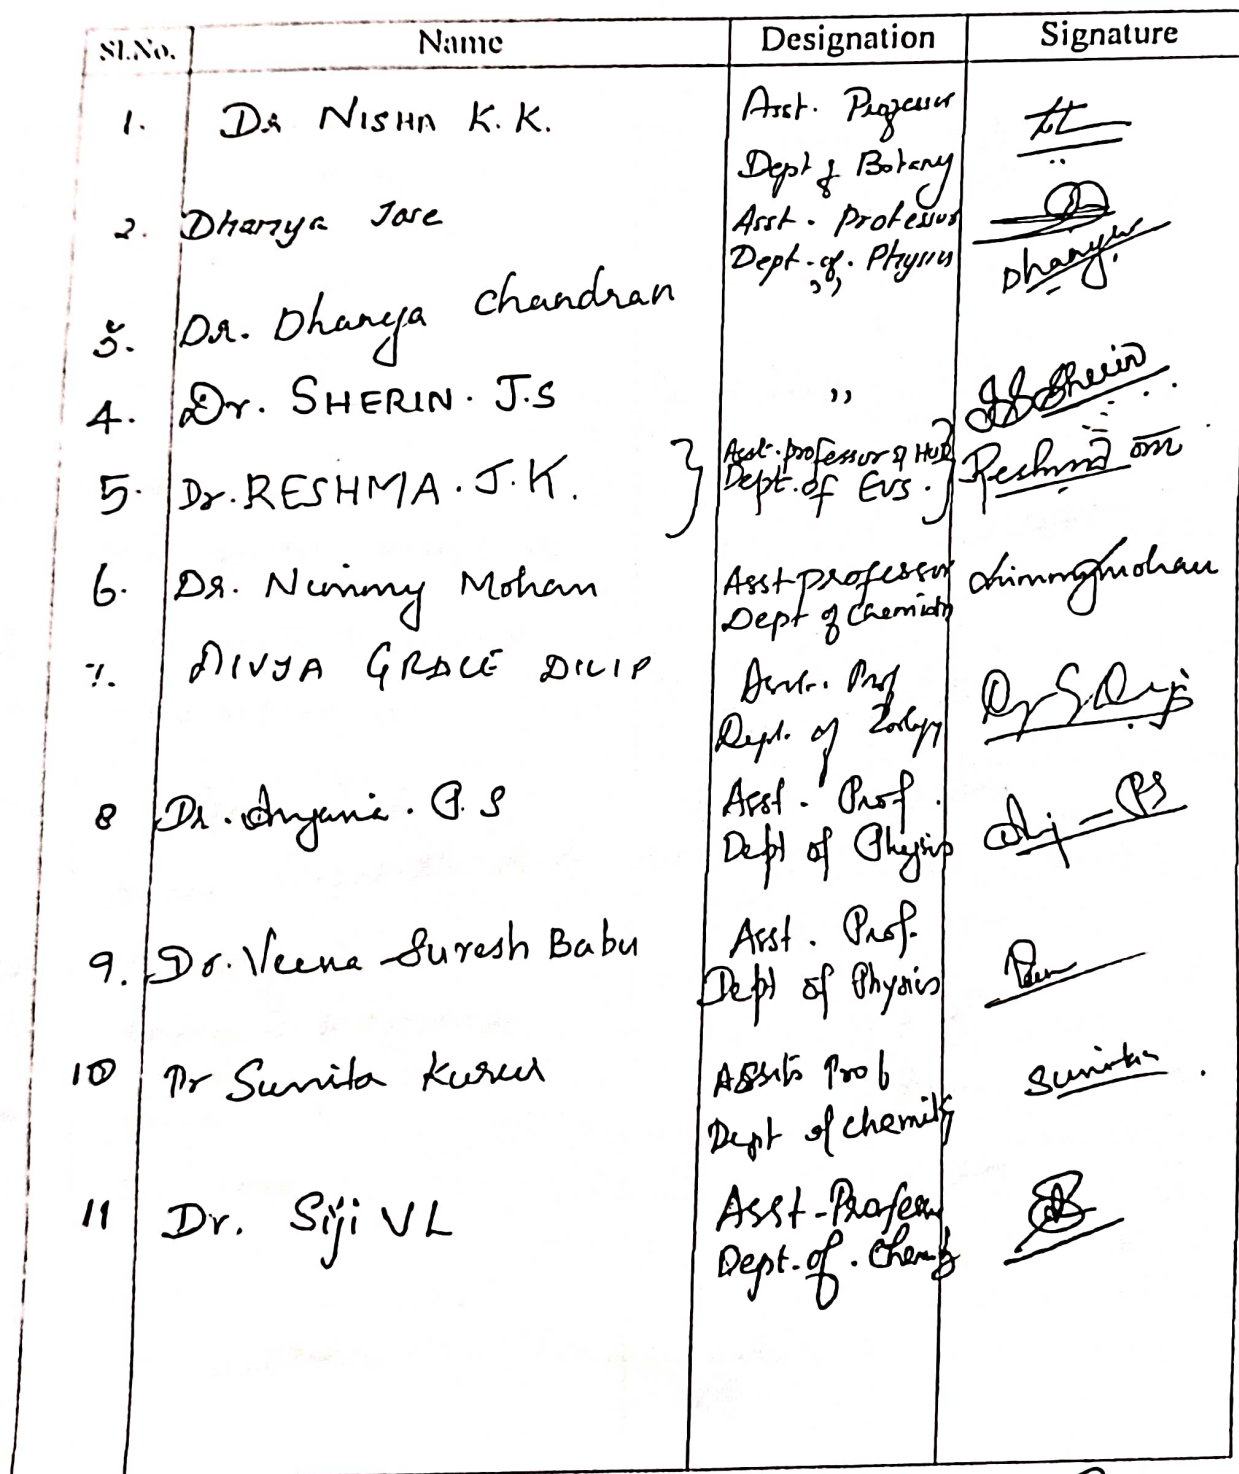 Sl.No. Name Designation Signature
1. Dr NISHA K.K. Asst. Professor
Dept of Botany
2. Dhanya Jose Asst. Professor
Dept. of. Physics
3. Dr. Dhanya Chandran ,, Dhanya
4. Dr. SHERIN. J.S ,, JS Sherin
5. Dr. RESHMA. J.K. Asst. professor & HOD Reshma
Dept. of Evs.
6. Dr. Nimmy Mohan Asst professor Nimmymohan
Dept of Chemistry
7. DIVYA GRACE DILIP Asst. Prof
Dept. of Zoology
8 Dr. Anjana. P.S Asst. Prof.
Dept of Physics
9. Dr. Veena Suresh Babu Asst. Prof.
Dept of Physics
10 Dr Sunita Kurur Prof Sunita
Dept of chemistry
11 Dr. Siji V L Asst-Professor
Dept. of. Chemistry